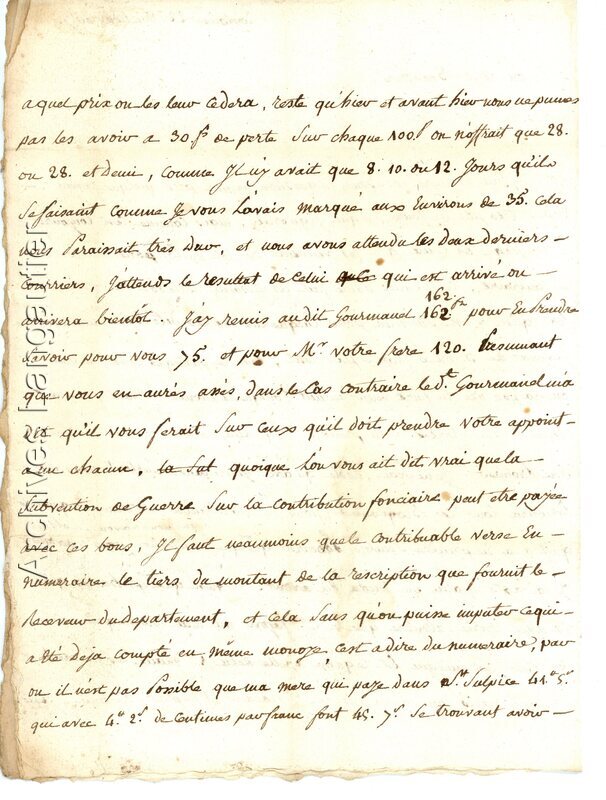 aquel prix on les leur cedera, reste qu'hier et avant hier nous ne pumes
pas les avoir a 30 f de perte sur chaque 100 l on n'offrait que 28.
ou 28. et demi, comme Il n'y avait que 8. 10. ou 12. Jours qu'ils
se faisaint comme Je vous L'avais marqué aux Environs de 35. Cela
nous Paraissait très Dur, et nous avons attendu les deux derniers
courriers, J'attends le resultat de celui qui est arrivé ou
arrivera bientôt. J'ay remis audit Gourmand 162 162 f pour En Prendre
savoir pour vous 75. et pour Mr votre frere 120. Presumant
que vous en aurés assés, dans le Cas contraire le dt. Gourmand m'a
Dit qu'il vous ferait sur ceux qu'il doit prendre votre appoint
a un chacun, la Sut quoique L'on vous ait dit vrai que la
subvention de Guerre sur la contribution fonciaire peut etre payée
avec ces bons, Il faut neaumoins que le contribuable verse En
numeraire le tiers du montant de la rescription que fournit le
Receveur du departement, et cela sans qu'on puisse imputer ce qui
a été deja compté en même monoye, c'est a dire du numeraire, par
ou il n'est pas Possible que ma mere qui paye dans St. Sulpice 41 5
qui avec 4 2 de Centimes par franc font 45. 7 se trouvant avoir
Archives Langautier